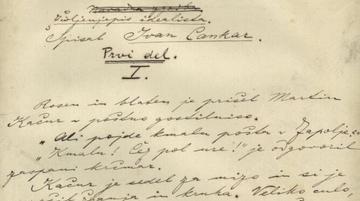 Življenjepis idealista.
Spisal Ivan Cankar.
Prvi del.
I.
Rosen in blaten je prišel Martin
Kačur v poštno gostilnico.
"Ali pojde kmalu pošta v Zapolje?"
"Kmalu! Čez pol ure!" je odgovoril
zaspani krčmar.
Kačur je sedel za mizo in si je
in kruha. Veliko culo,